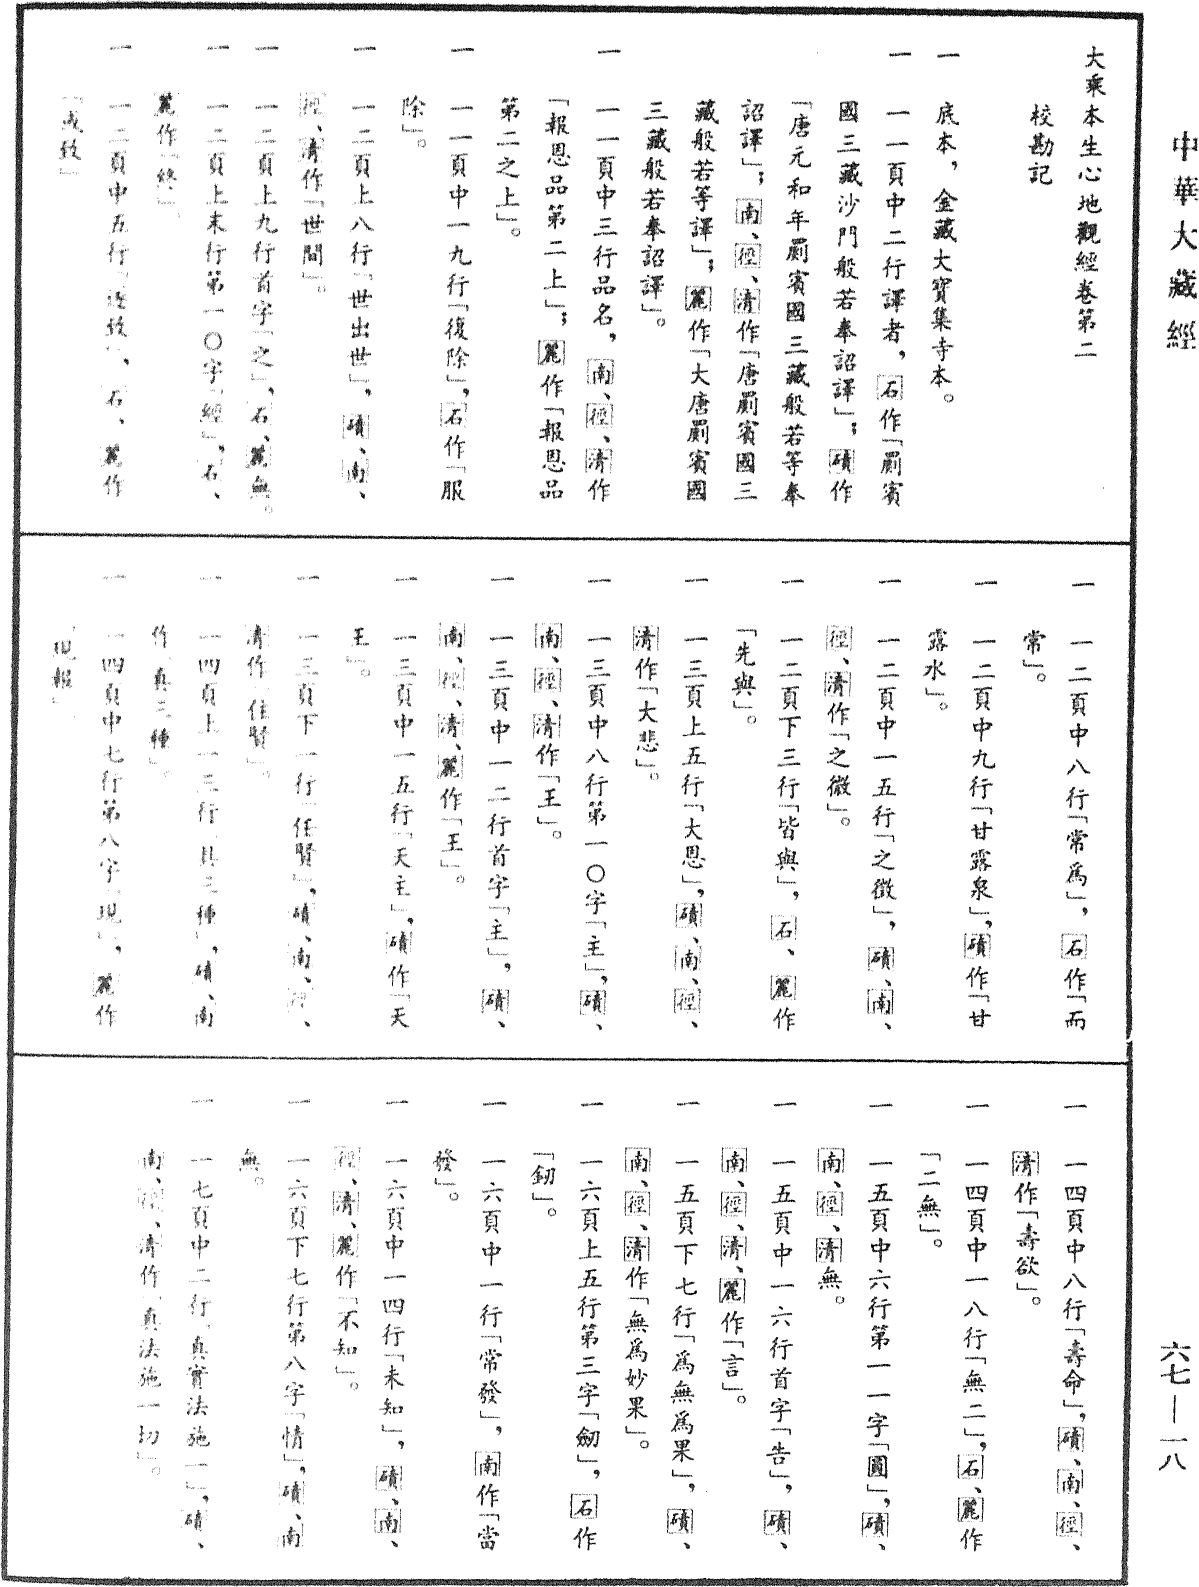 中華大藏經
大乘本生心地觀經卷第二
校勘記
一　底本，金藏大寶集寺本。
一　一一頁中二行譯者，石作「罽賓
國三藏沙門般若奉詔譯」；磧作
「唐元和年罽賓國三藏般若等奉
詔譯」；南、徑、清作「唐罽賓國三
藏般若等譯」；麗作「大唐罽賓國
三藏般若奉詔譯」。
一　一一頁中三行品名，南、徑、清作
「報恩品第二上」；麗作「報恩品
第二之上」。
一　一一頁中一九行「復除」，石作「服
除」。
一　一二頁上八行「世出世」，磧、南、
徑、清作「世間」。
一　一二頁上九行首字「之」，石、麗無。
一　一二頁上末行第一〇字「經」，石、
麗作「終」。
一　一二頁中五行「逐致」，石、麗作
「成致」
一　一二頁中八行「常爲」，石作「而
常」。
一　一二頁中九行「甘露泉」，磧作「甘
露水」。
一　一二頁中一五行「之徵」，磧、南、
徑、清作「之微」。
一　一二頁下三行「皆與」，石、麗作
「先與」。
一　一三頁上五行「大恩」，磧、南、徑、
清作「大悲」。
一　一三頁中八行第一〇字「主」，磧、
南、徑、清作「王」。
一　一三頁中一二行首字「主」，磧、
南、徑、清、麗作「王」。
一　一三頁中一五行「天主」，磧作「天
王」。
一　一三頁下一行「任賢」，磧、南、徑、
清作「住賢」。
一　一四頁上一三行「具三種」，磧、南
作「真三種」。
一　一四頁中七行第八字「現」，麗作
「現報」
一　一四頁中八行「壽命」，磧、南、徑、
清作「壽欲」。
一　一四頁中一八行「無二」，石、麗作
「二無」。
一　一五頁中六行第一一字「圓」，磧、
南、徑、清無。
一　一五頁中一六行首字「告」，磧、
南、徑、清、麗作「言」。
一　一五頁下七行「爲無爲果」，磧、
南、徑、清作「無爲妙果」。
一　一六頁上五行第三字「劒」，石作
「釰」。
一　一六頁中一行「常發」，南作「當
發」。
一　一六頁中一四行「未知」，磧、南、
徑、清、麗作「不知」。
一　一六頁下七行第八字「情」，磧、南
無。
一　一七頁中二行「真實法施一」，磧、
南、徑、清作「真法施一切」。
六七—一八